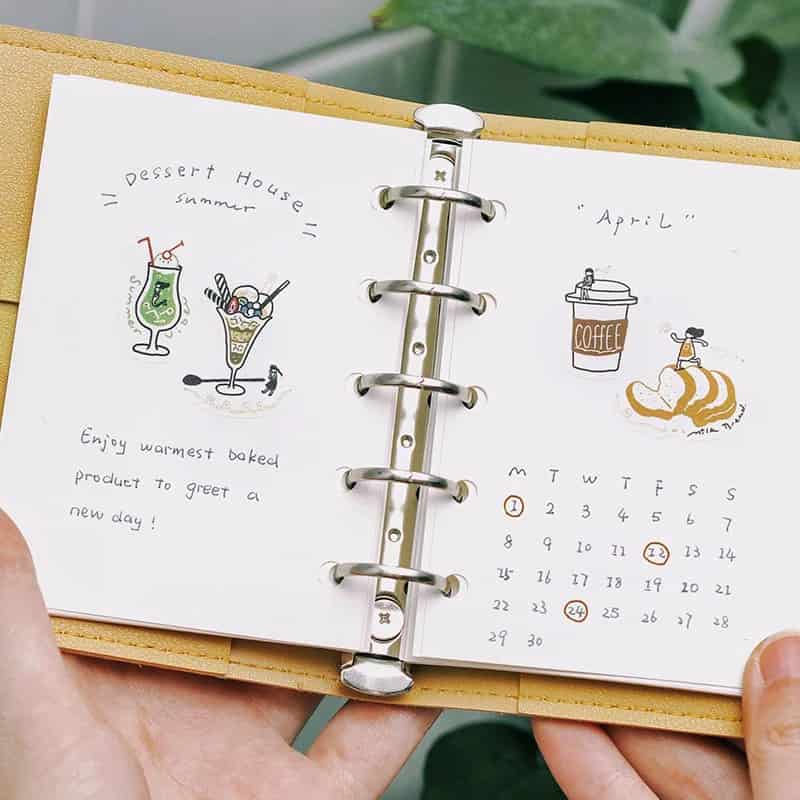 Dessert House
summer
Enjoy warmest baked
product to greet a
new day!
"April"
COFFEE
milk Bread
M T W T F S S
1 2 3 4 5 6 7
8 9 10 11 12 13 14
15 16 17 18 19 20 21
22 23 24 25 26 27 28
29 30